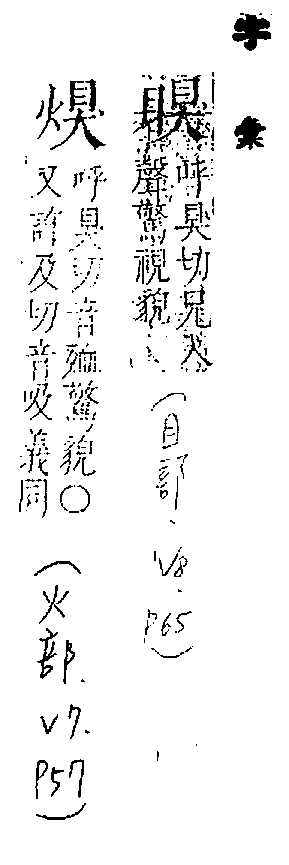 字彙
瞁
呼狊切兄入
聲驚視貌
(目部. V8. P65)
呼狊切音殈驚貌○
又許及切音吸義同
(火部. V7. P57)